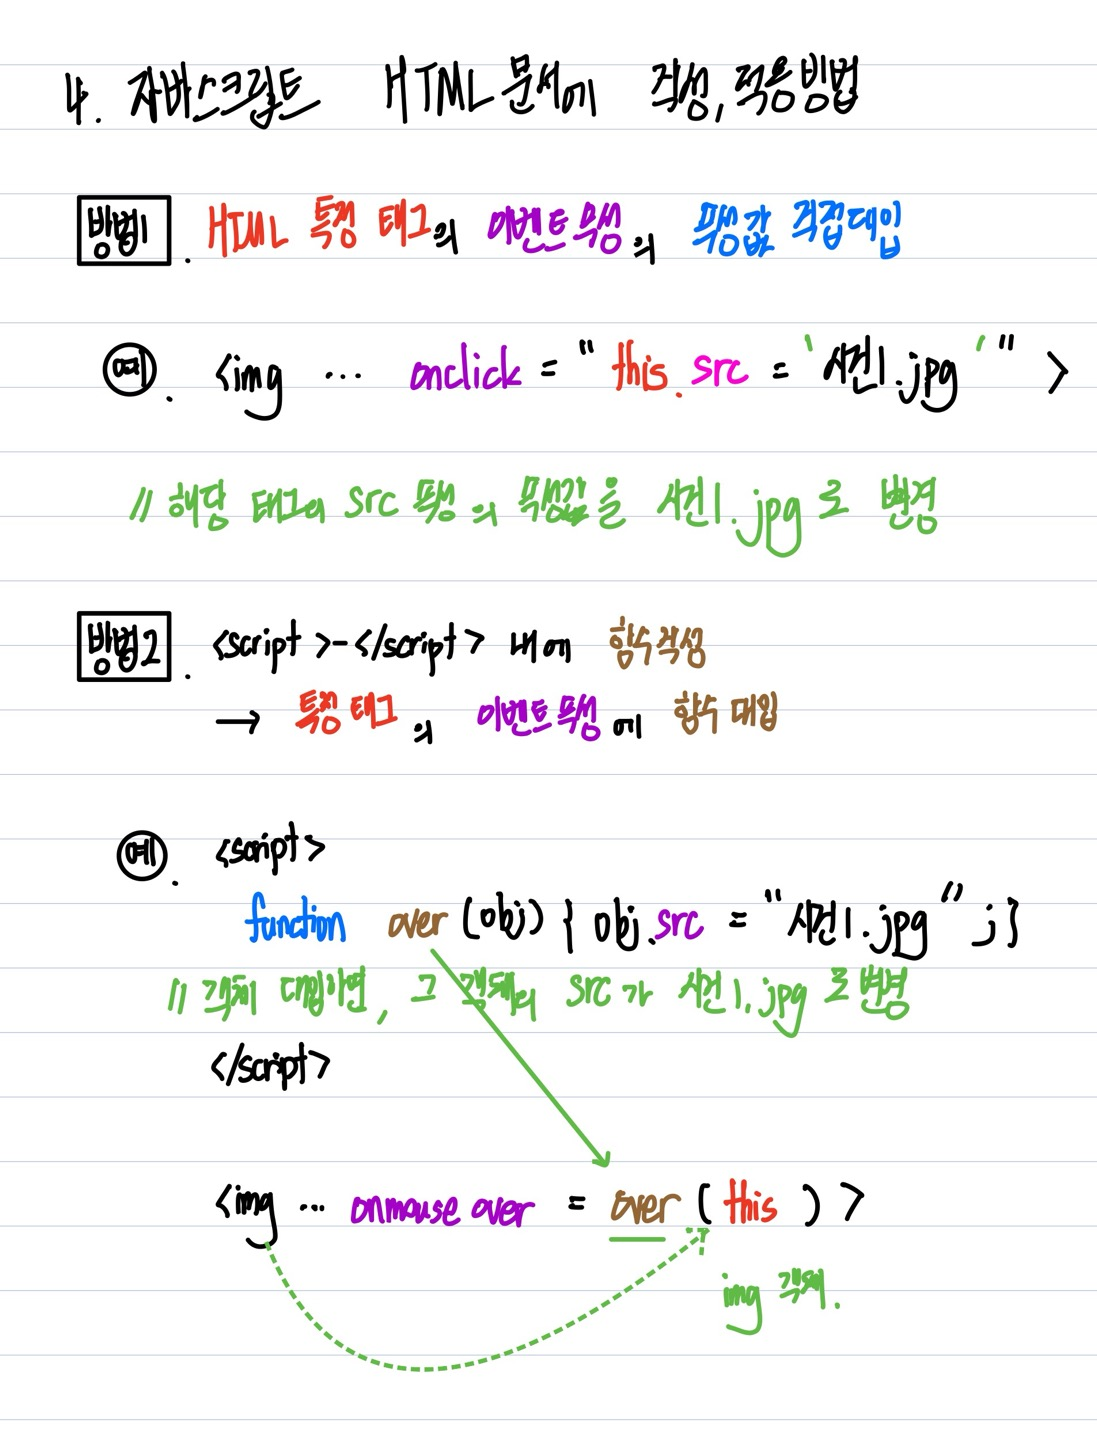 4. 자바스크립트 HTML 문서에 작성, 적용방법
방법1. HTML 특정 태그의 이벤트 속성의 속성값 직접대입
예. <img ... onclick = "this.src = '사진1.jpg'" >
// 해당 태그의 src 속성의 속성값을 사진1.jpg로 변경
방법2. <script>-</script> 내에 함수작성
→ 특정 태그의 이벤트속성에 함수 대입
예. <script>
function over (obj) { obj.src = "사진1.jpg";}
// 객체 대입하면, 그 객체의 src가 사진1.jpg로 변경
</script>
<img ... onmouse over = over (this) >
img 객체.